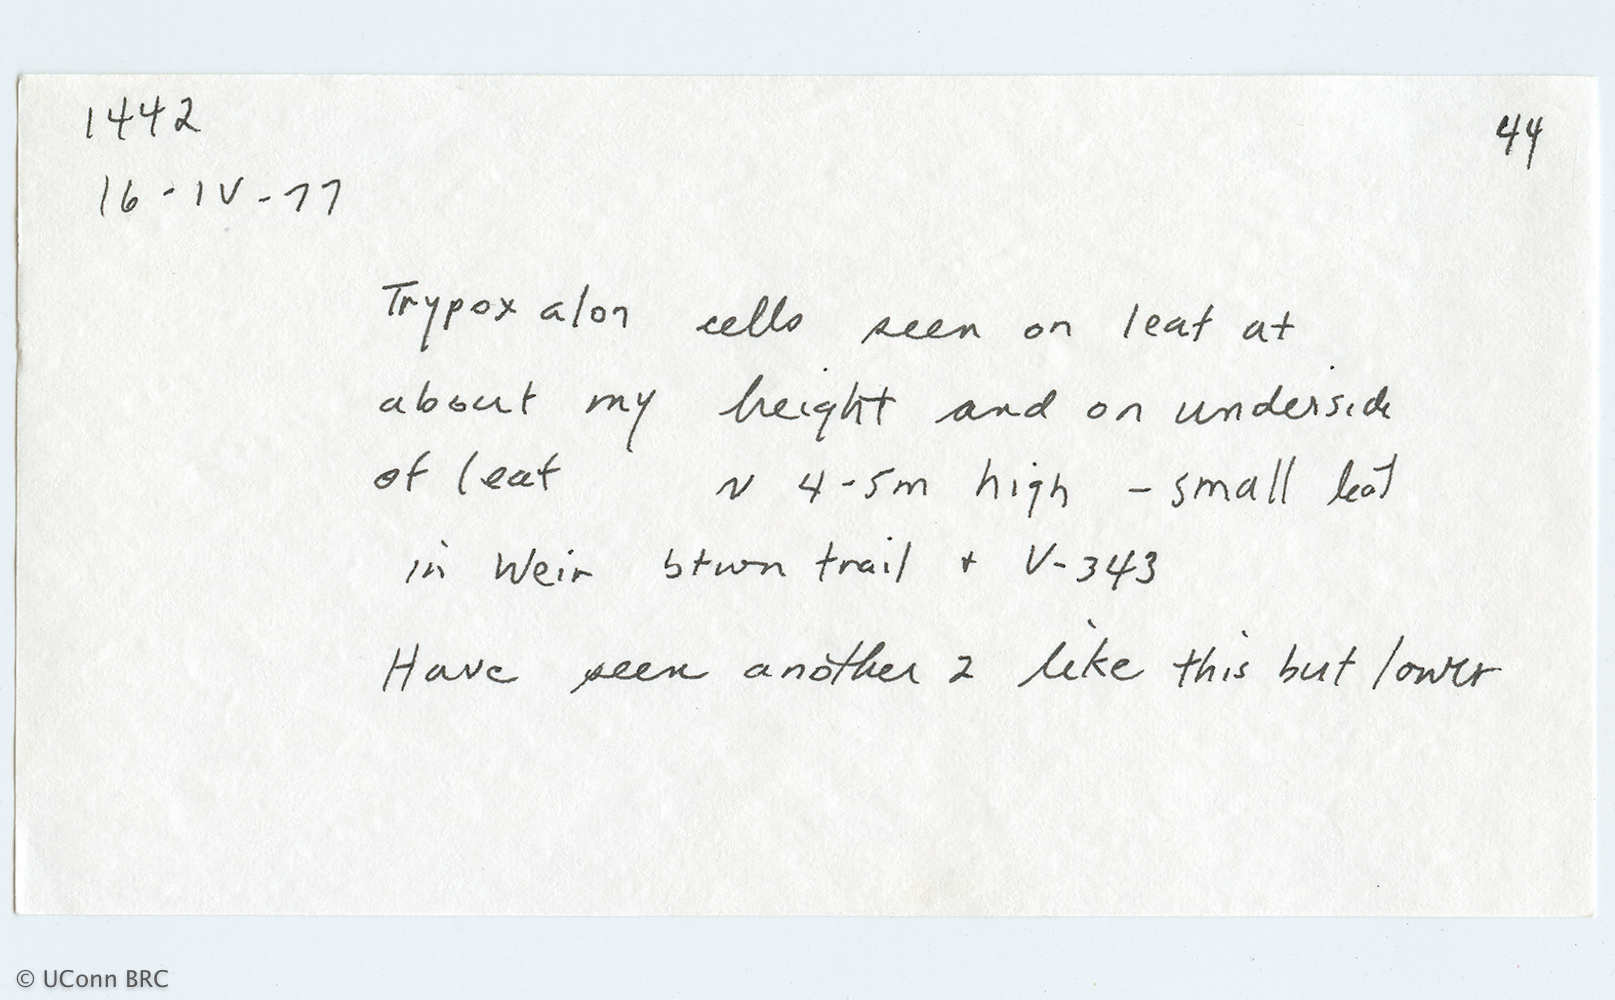 1442
44
16-IV-77
Trypoxalon cells seen on leaf at
about my height and on underside
of leaf ~ 4-5m high - small leaf
in Weir btwn trail + V-343
Have seen another 2 like this but lower
© UConn BRC